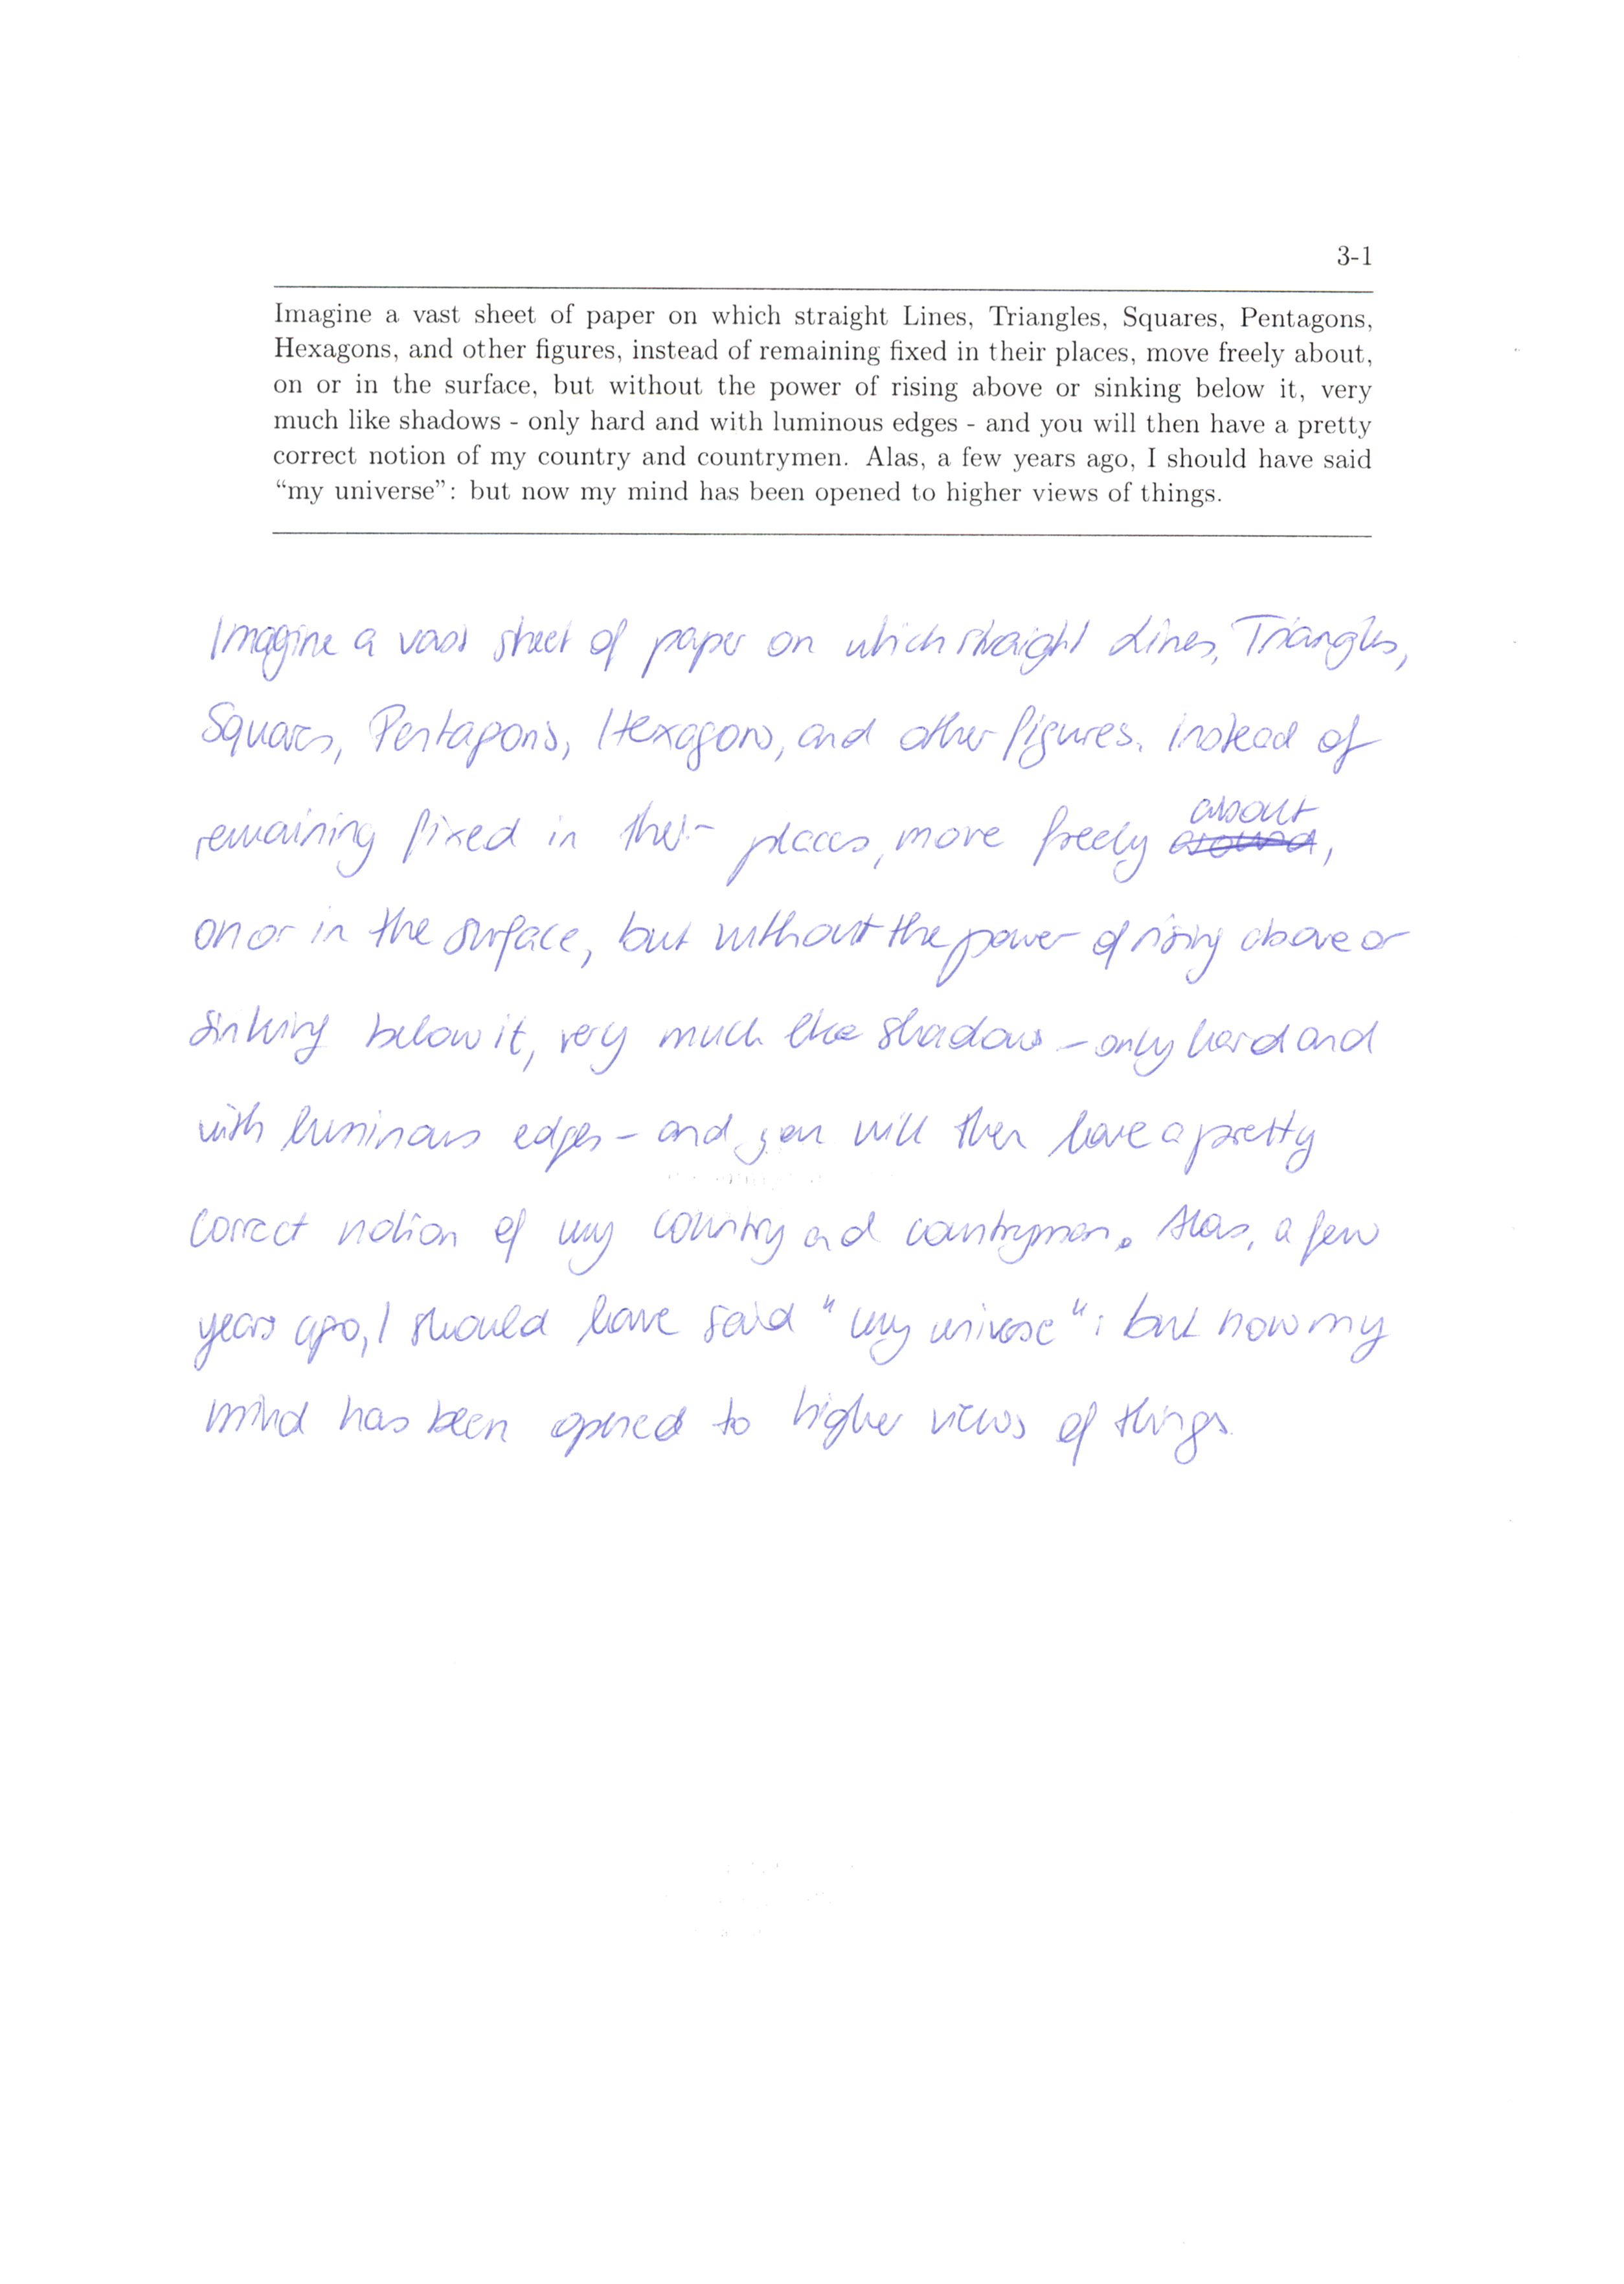 3-1
Imagine a vast sheet of paper on which straight Lines, Triangles, Squares, Pentagons,
Hexagons, and other figures, instead of remaining fixed in their places, move freely about,
on or in the surface, but without the power of rising above or sinking below it, very
much like shadows - only hard and with luminous edges - and you will then have a pretty
correct notion of my country and countrymen. Alas, a few years ago, I should have said
“my universe”: but now my mind has been opened to higher views of things.
Imagine a vast sheet of paper on which straight Lines, Triangles,
Squares, Pentagons, Hexagons, and other figures, instead of
remaining fixed in their places, move freely about
around,
on or in the surface, but without the power of rising above or
sinking below it, very much like shadows - only hard and
with luminous edges - and you will then have a pretty
correct notion of my country and countrymen. Alas, a few
years ago, I should have said "my universe": but now my
mind has been opened to higher views of things.